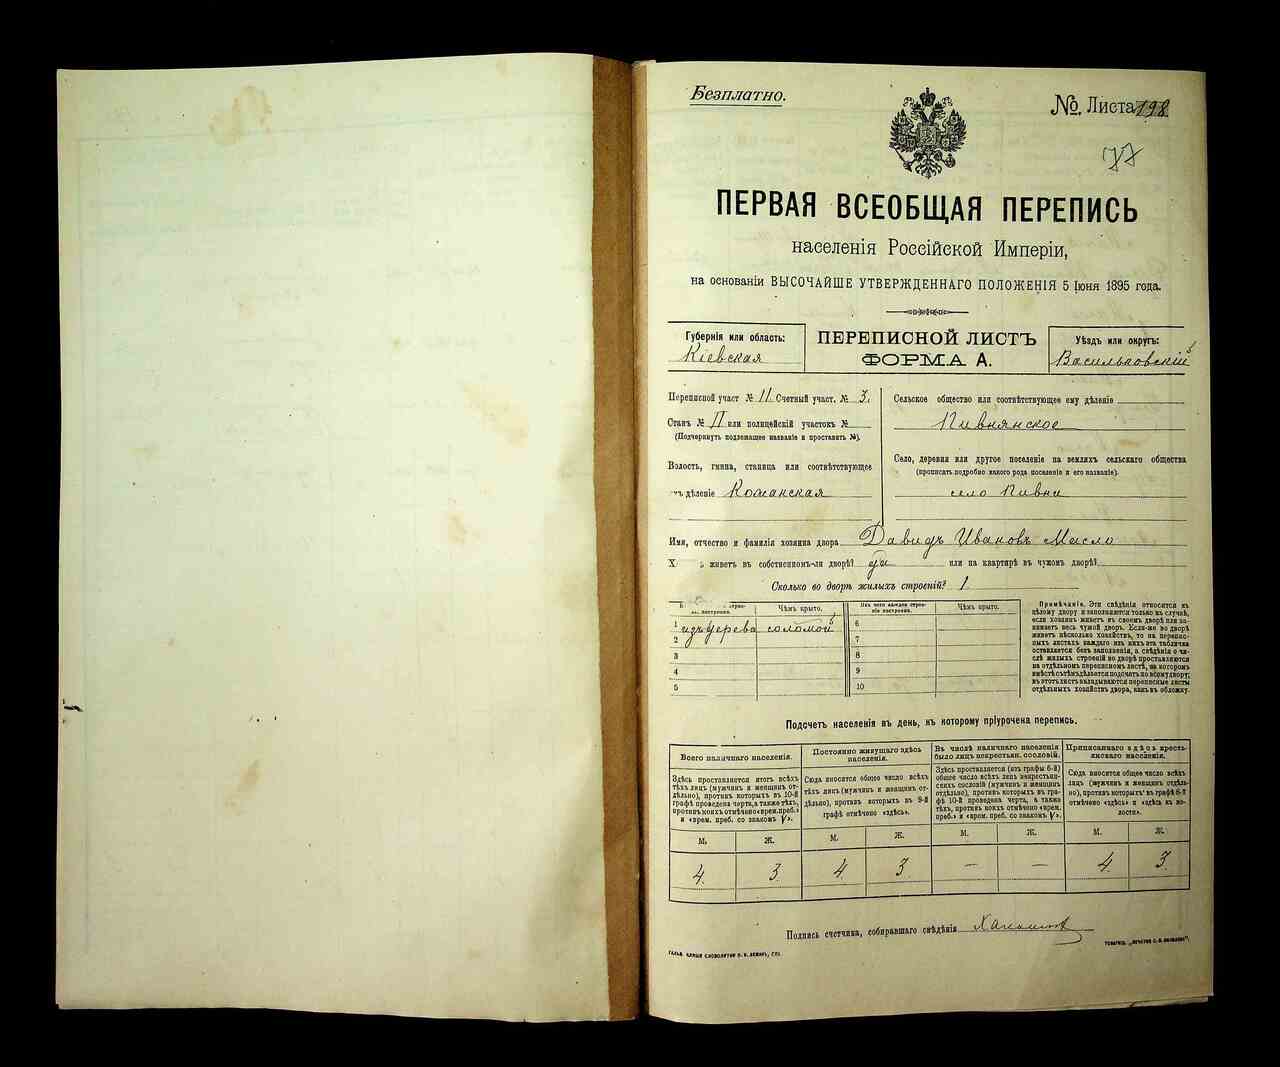 Безплатно.
№ Листа 198
77
ПЕРВАЯ ВСЕОБЩАЯ ПЕРЕПИСЬ
населенія Россійской Имперіи,
на основаніи ВЫСОЧАЙШЕ УТВЕРЖДЕННАГО ПОЛОЖЕНІЯ 5 Іюня 1895 года.
Губернія или область:
Кіевская
ПЕРЕПИСНОЙ ЛИСТЪ
ФОРМА А.
Уѣздъ или округъ:
Васильковскій
Переписной участ № II Счетный участ. № 3.
Станъ № II или полицейскій участокъ №
(Подчеркнуть подлежащее названіе и проставить №).
Волость, гмина, станица или соотвѣтствующее
дѣленіе Кожанская
Сельское общество или соотвѣтствующее ему дѣленіе
Пивнянское
Село, деревня или другое поселеніе на земляхъ сельскаго общества
(прописать подробно какого рода поселеніе и его названіе).
село Пивни
Имя, отчество и фамилія хозяина двора Давидъ Ивановъ Масло
живетъ въ собственномъ-ли дворѣ? да или на квартирѣ въ чужомъ дворѣ?
Сколько во дворѣ жилыхъ строеній? 1
Чѣмъ крыто.
Изъ чего каждое строеніе построено.
Чѣмъ крыто.
1 изъ дерева соломой 6
2 7
3 8
4 9
5 10
Примѣчаніе. Эти свѣдѣнія относятся къ
цѣлому двору и заполняются только въ случаѣ,
если хозяинъ живетъ въ своемъ дворѣ или занимаетъ
весь чужой дворъ. Если-же во дворѣ
живетъ нѣсколько хозяйствъ, то на переписныхъ
листахъ каждаго изъ нихъ эта табличка
оставляется безъ заполненія, а свѣдѣнія о числѣ
жилыхъ строеній во дворѣ проставляются
на отдѣльномъ переписномъ листѣ, на которомъ
вмѣстѣ съ тѣмъ дѣлается подсчетъ по всему двору;
въ этотъ листъ вкладываются переписные листы
отдѣльныхъ хозяйствъ двора, какъ въ обложку.
Подсчетъ населенія въ день, къ которому пріурочена перепись.
Всего наличнаго населенія.
Здѣсь проставляется итогъ всѣхъ
тѣхъ лицъ (мужчинъ и женщинъ отдѣльно),
противъ которыхъ въ 10-й
графѣ проведена черта, а также тѣхъ,
противъ коихъ отмѣчено «врем. преб.»
и «врем. преб. со знакомъ V».
М. Ж.
4. 3
Постоянно живущаго здѣсь
населенія.
Сюда вносится общее число всѣхъ
тѣхъ лицъ (мужчинъ и женщинъ отдѣльно),
противъ которыхъ въ 9-й
графѣ отмѣчено «здѣсь».
М. Ж.
4 3
Въ числѣ наличнаго населенія
было лицъ некрестьян. сословій.
Здѣсь проставляется (изъ графы 6-й)
общее число всѣхъ лицъ некрестьянскихъ
сословій (мужчинъ и женщинъ
отдѣльно), противъ которыхъ въ графѣ
10-й проведена черта, а также
тѣхъ, противъ коихъ отмѣчено «врем.
преб.» и «врем. преб. со знакомъ V».
М. Ж.
— —
Приписаннаго здѣсь крестьянскаго
населенія.
Сюда вносится общее число всѣхъ
лицъ (мужчинъ и женщинъ отдѣльно),
противъ которыхъ въ графѣ 8-й
отмѣчено «здѣсь» и «здѣсь въ волости».
М. Ж.
4 3
Подпись счетчика, собиравшаго свѣдѣнія